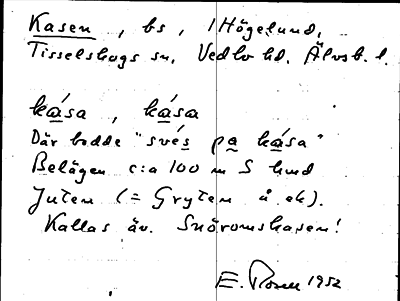 Kasen, bs, i Högelund,
Tisselskogs sn, Vedbo hd, Älvsb. l.
kása, kása
Där bodde "svés pa kása"
Belägen c:a 100 m S hmd
Juten (= Gryten å. ek).
Kallas äv. Snöromskasen!
E. 1952